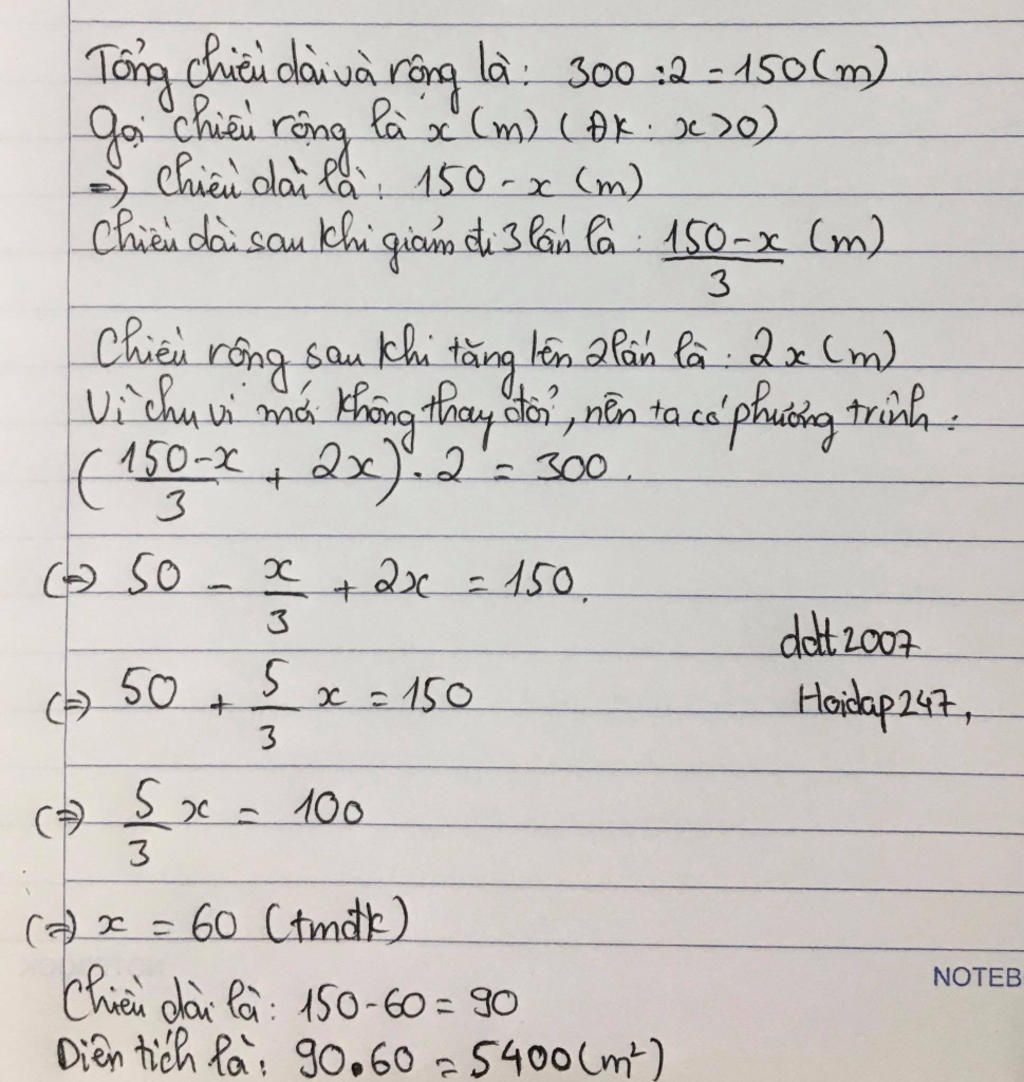 Tổng chiều dài và rộng là: 300 : 2 = 150 (m)
Gọi chiều rộng là x (m) (ĐK: x > 0)
=> Chiều dài là: 150 - x (m)
Chiều dài sau khi giảm đi 3 lần là: (150 - x)/3 (m)
Chiều rộng sau khi tăng lên 2 lần là: 2x (m)
Vì chu vi mới không thay đổi, nên ta có phương trình:
((150 - x)/3 + 2x) . 2 = 300.
(=) 50 - x/3 + 2x = 150.
ddt2007
(=) 50 + 5/3 x = 150
Hoidap247,
(=) 5/3 x = 100
(=) x = 60 (tmđk)
NOTEB
Chiều dài là: 150 - 60 = 90
Diện tích là: 90.60 = 5400 (m²)